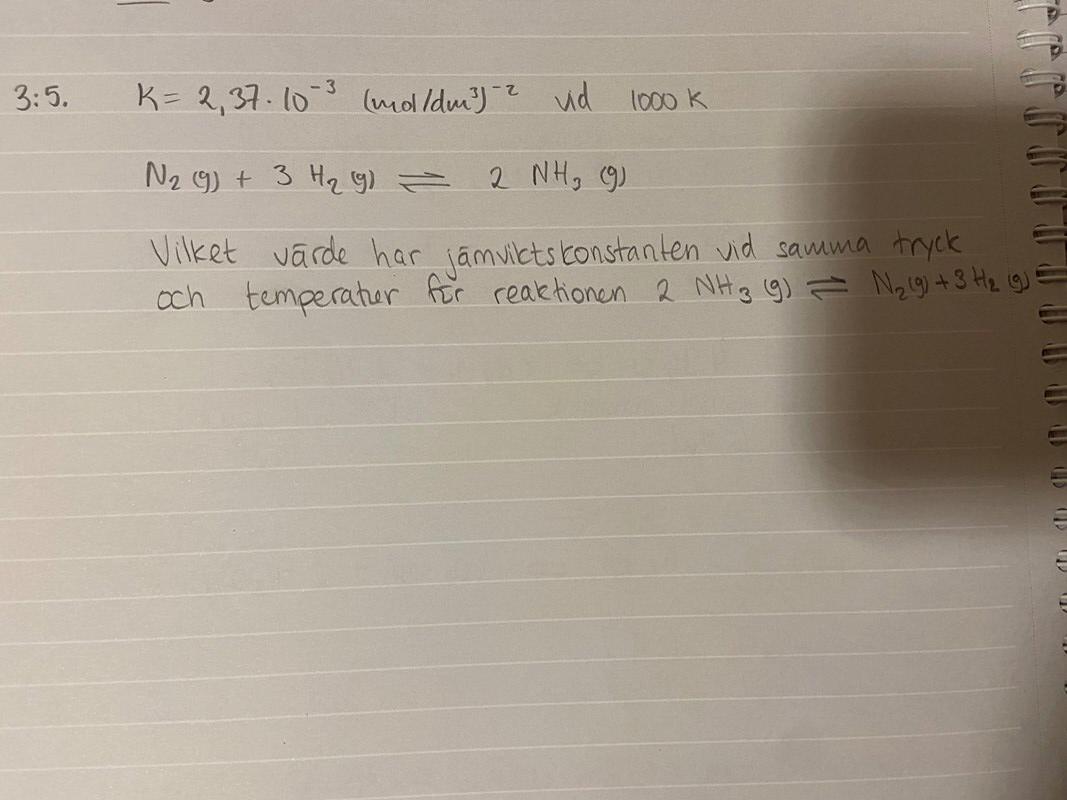 3:5. K = 2,37 · 10⁻³ (mol/dm³)⁻² vid 1000 K
N₂ (g) + 3 H₂ (g) ⇌ 2 NH₃ (g)
Vilket värde har jämviktskonstanten vid samma tryck
och temperatur för reaktionen 2 NH₃ (g) ⇌ N₂(g) + 3 H₂ (g)